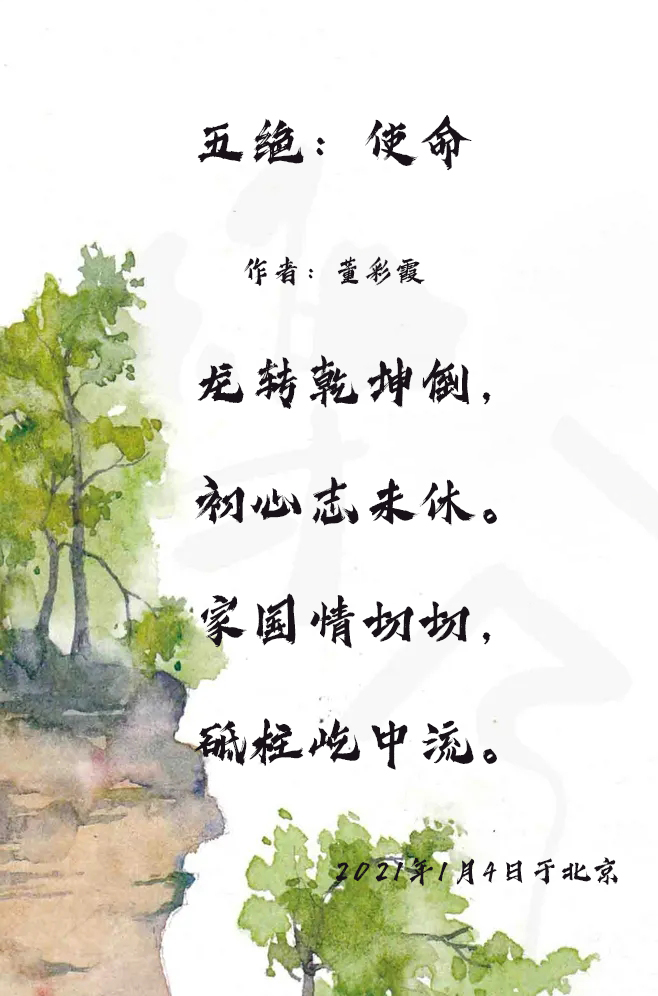 五绝：使命
作者：董彩霞
龙转乾坤倒，
初心志未休。
家国情切切，
砥柱屹中流。
2021年1月4日于北京